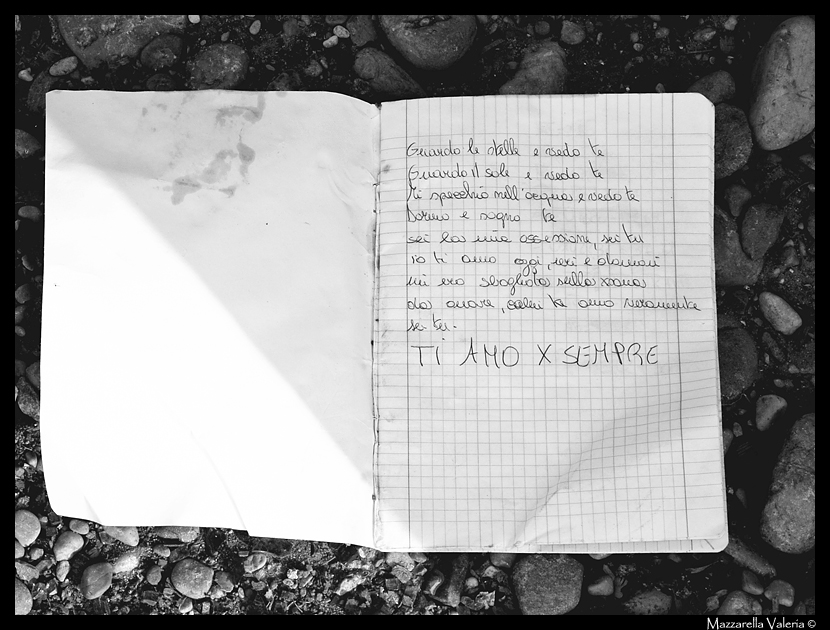 Guardo le stelle e vedo te
Guardo il sole e vedo te
Mi specchio nell'acqua e vedo te
Dormo e sogno te
sei la mia ossessione, sei tu
io ti amo oggi, ieri e domani
mi ero sbagliata sulla xsona
da amare, colei ke amo veramente
sei tu.
TI AMO X SEMPRE
Mazzarella Valeria ©